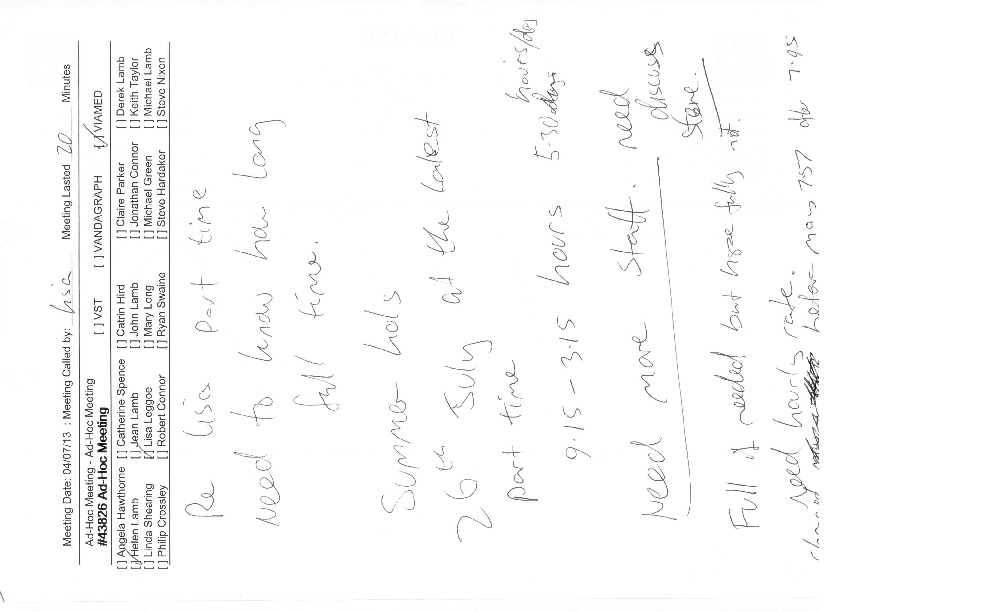 Meeting Date: 04/07/13 : Meeting Called by: Lisa Meeting Lasted 20 Minutes
Ad-Hoc Meeting - Ad-Hoc Meeting [ ] VST [ ] VANDAGRAPH [✓] VIAMED
#43826 Ad-Hoc Meeting
[ ] Angela Hawthorne [ ] Catherine Spence [ ] Catrin Hird [ ] Claire Parker [ ] Derek Lamb
[✓] Helen Lamb [ ] Jean Lamb [ ] John Lamb [ ] Jonathan Connor [ ] Keith Taylor
[ ] Linda Shearing [✓] Lisa Leggoe [ ] Mary Long [ ] Michael Green [ ] Michael Lamb
[ ] Philip Crossley [ ] Robert Connor [ ] Ryan Swaine [ ] Steve Hardaker [ ] Steve Nixon
Re Lisa part time
Need to know how long
full time.
Summer hols
26th July at the latest
part time hours/day
9.15 - 3.15 hours 5.30 days
Need more staff. need
discuss
Steve.
Full if needed but hope fully not.
Need hourly rate.
before now 7.57 after 7.95